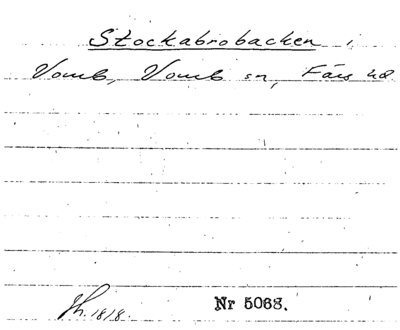 Stockabrobacken,
Vomb, Vomb sn, Färs hd
Sh. 1818.
Nr 5068.